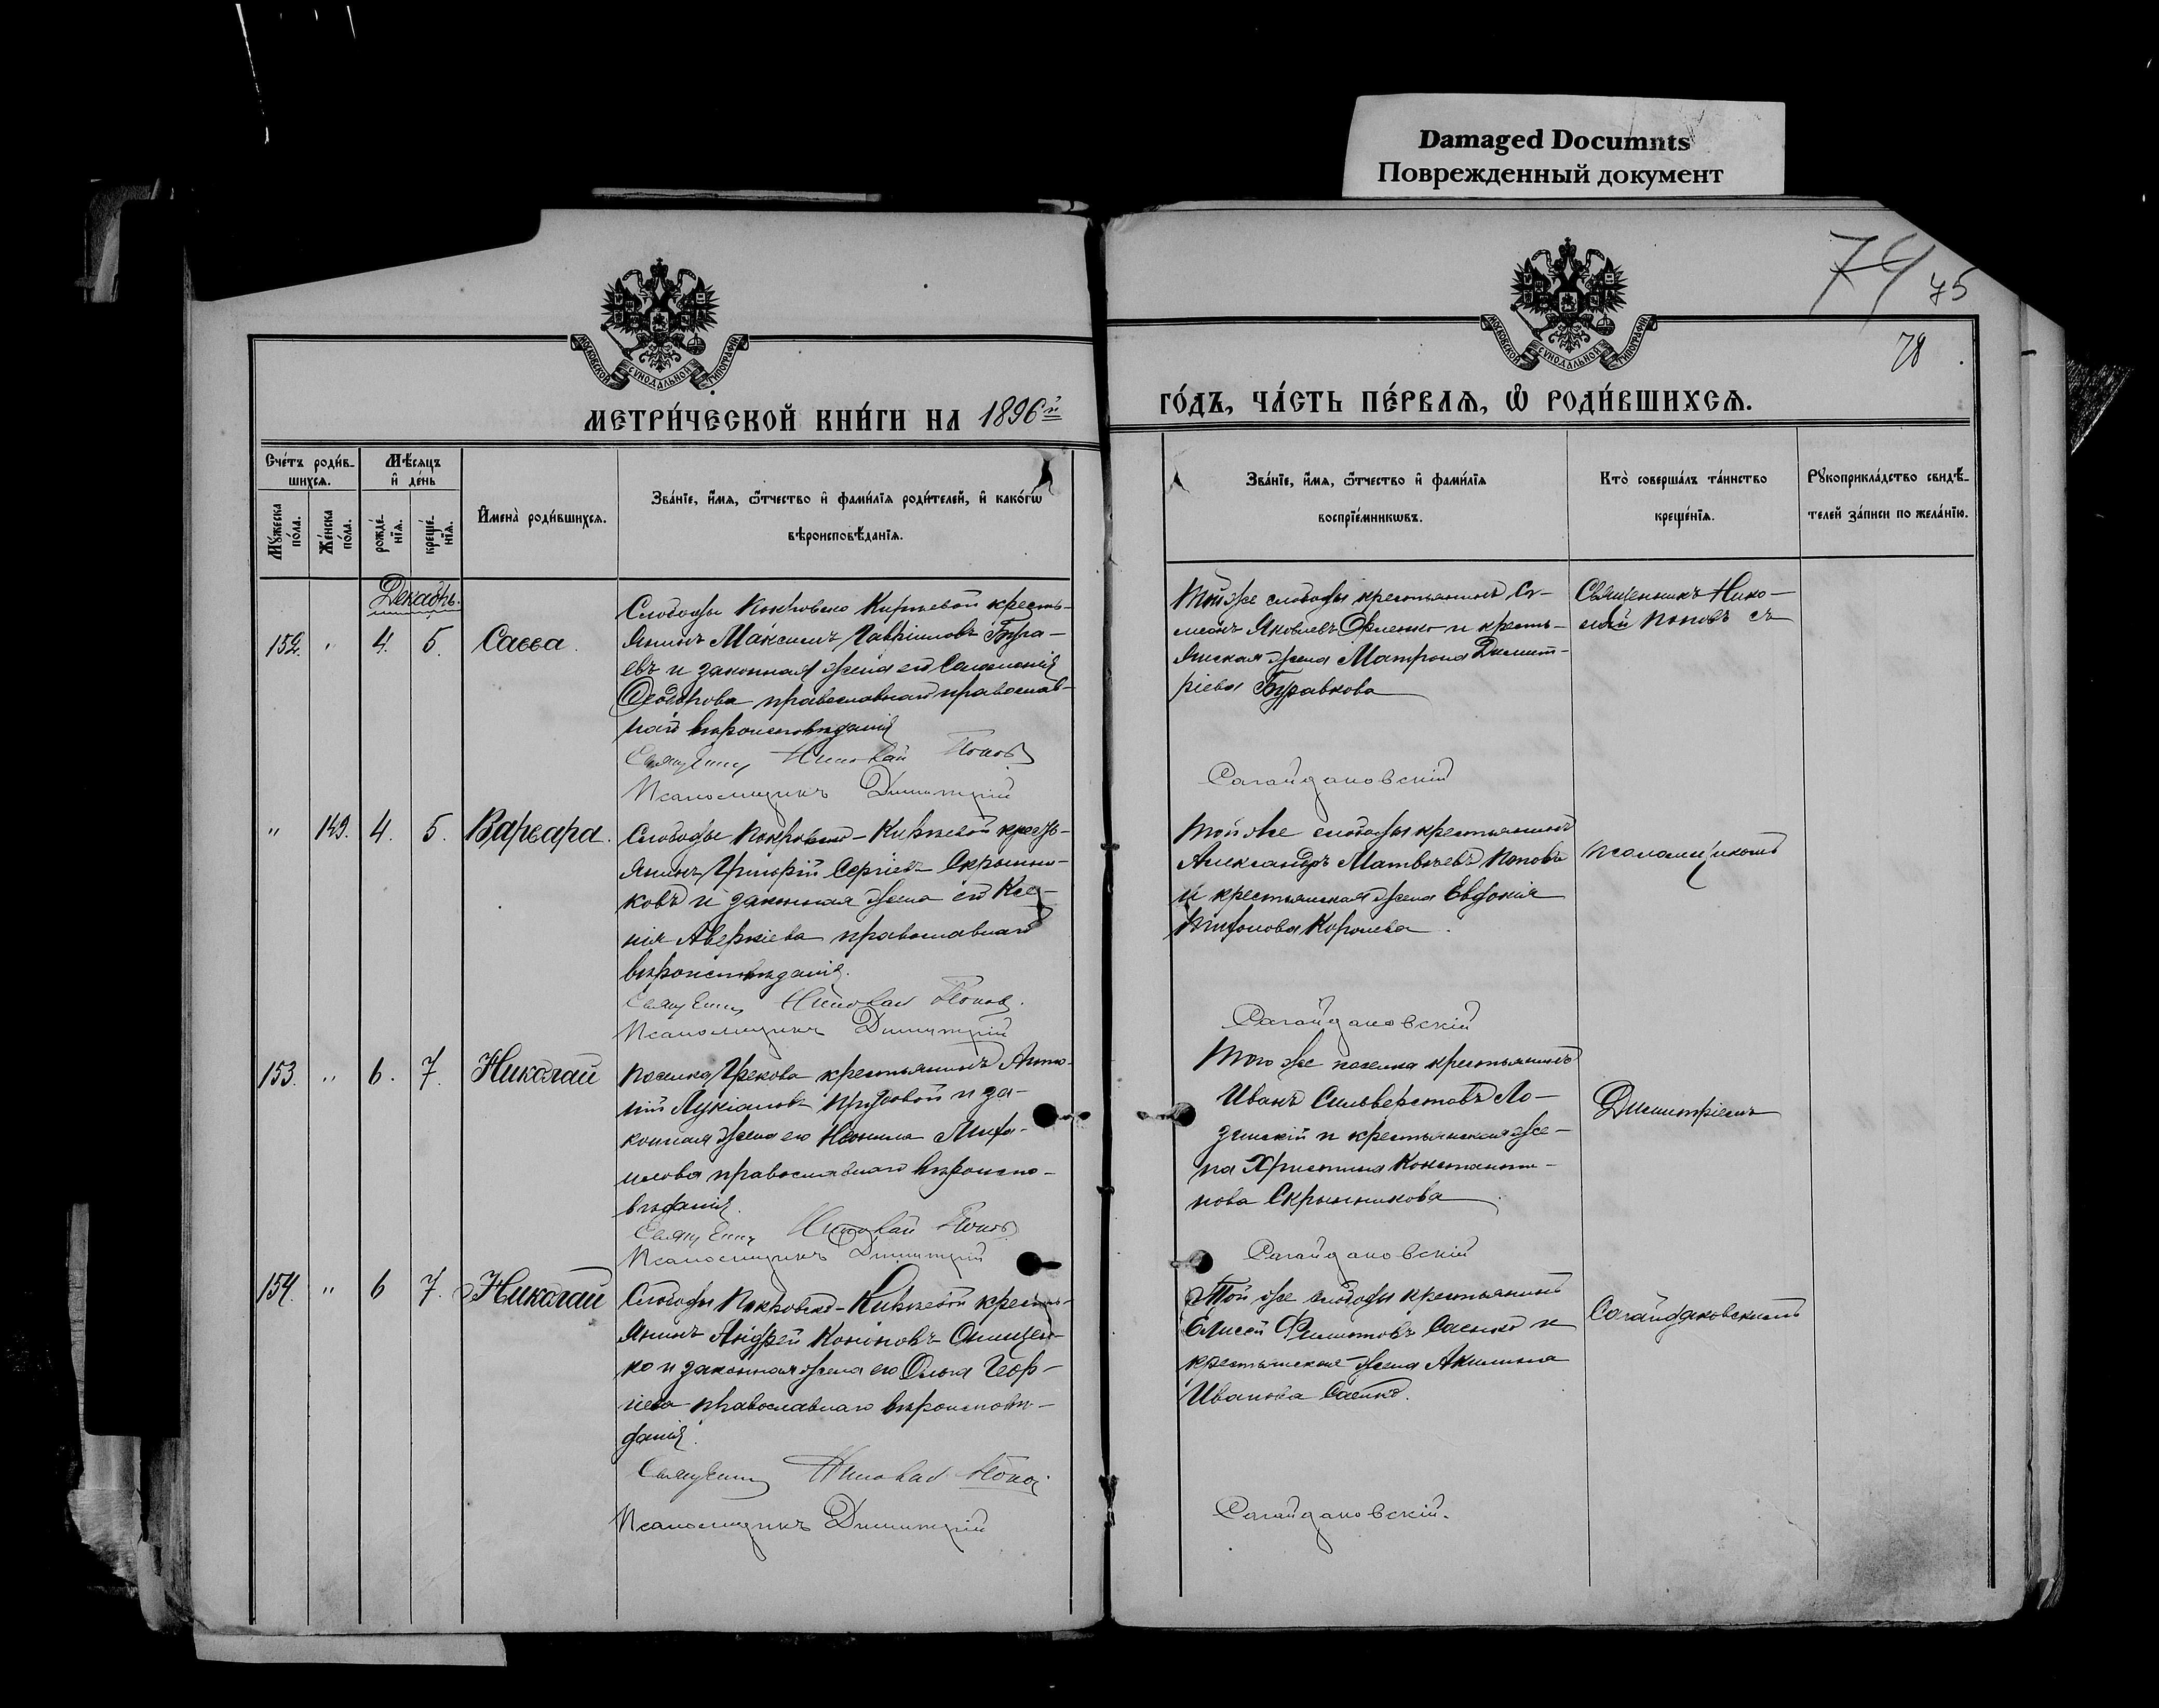 Damaged Documnts
Поврежденный документ
74 75
78
МОСКОВСКОЙ СѴНОДАЛЬНОЙ ТИПОГРАФІИ
МОСКОВСКОЙ СѴНОДАЛЬНОЙ ТИПОГРАФІИ
МЕТРИ́ЧЕСКОЙ КНИ́ГИ НА 1896й
ГО́ДЪ, ЧА́СТЬ ПЕ́РВАѦ, Ѽ РОДИ́ВШИХСѦ.
Сче́тъ роди́в-
шихсѧ.
Мѣ́сѧцъ
и҆ де́нь
Мꙋ́жеска по́ла.
Же́нска по́ла.
рожде́-
нїѧ.
креще́-
нїѧ.
И҆мена̀ роди́вшихсѧ.
Зва́нїе, и҆́мѧ, ѻ҆́тчество и҆ фами́лїѧ роди́телей, и҆ како́гѡ
вѣроисповѣ́данїѧ.
Зва́нїе, и҆́мѧ, ѻ҆́тчество и҆ фами́лїѧ
воспрїе́мникѡвъ.
Кто̀ соверша́лъ та́инство
креще́нїѧ.
Рꙋкоприкла́дство свидѣ́-
телей за́писи по жела́нїю.
Декабрь.
152. " 4. 5. Савва.
Слободы Покровско Киреевой кресть-
янинъ Максимъ Гавріиловъ
евъ и законная жена его Саломонія
Ѳеодорова православнаго православ-
наго вѣроисповѣданія
Священникъ Николай Поповъ
Псаломщикъ Димитрій
Той же слободы крестьянинъ Си-
меонъ Яковлевъ и кресть-
янская жена Матрона Димит-
ріева Буравкова
Сагайдаковскій
Священникъ Нико-
лай Поповъ съ
" 149. 4. 5. Варвара.
Слободы Покровско-Киреевой кресть-
янинъ Григорій Сергіевъ Скрынни-
ковъ и законная жена его Ксе-
нія Аверкіева православнаго
вѣроисповѣданія.
Священникъ Николай Поповъ
Псаломщикъ Димитрій
Той же слободы крестьянинъ
Александръ Матвѣевъ Поповъ
и крестьянская жена Евдокія
Королева.
Сагайдаковскій
псаломщикомъ
153. " 6. 7. Николай
Поселка Грекова крестьянинъ Анто-
ній Лукіановъ и за-
конная жена его Неонила Миха-
илова православнаго вѣроиспо-
вѣданія.
Священникъ Николай Поповъ
Псаломщикъ Димитрій
Того же поселка крестьянинъ
Иванъ Сильверстовъ Ло-
зинскій и крестьянская же-
на Христина Константи-
нова Скрынникова
Сагайдаковскій
Димитріемъ
154. " 6 7. Николай
Слободы Покровско-Киреевой кресть-
янинъ Андрей Кононовъ Онищен-
ко и законная жена его Ольга Геор-
гіева православнаго вѣроисповѣ-
данія.
Священникъ Николай Поповъ
Псаломщикъ Димитрій
Той же слободы крестьянинъ
Елисей Филиповъ Саенко и
крестьянская жена Акилина
Иванова Саенко.
Сагайдаковскій.
Сагайдаковскимъ